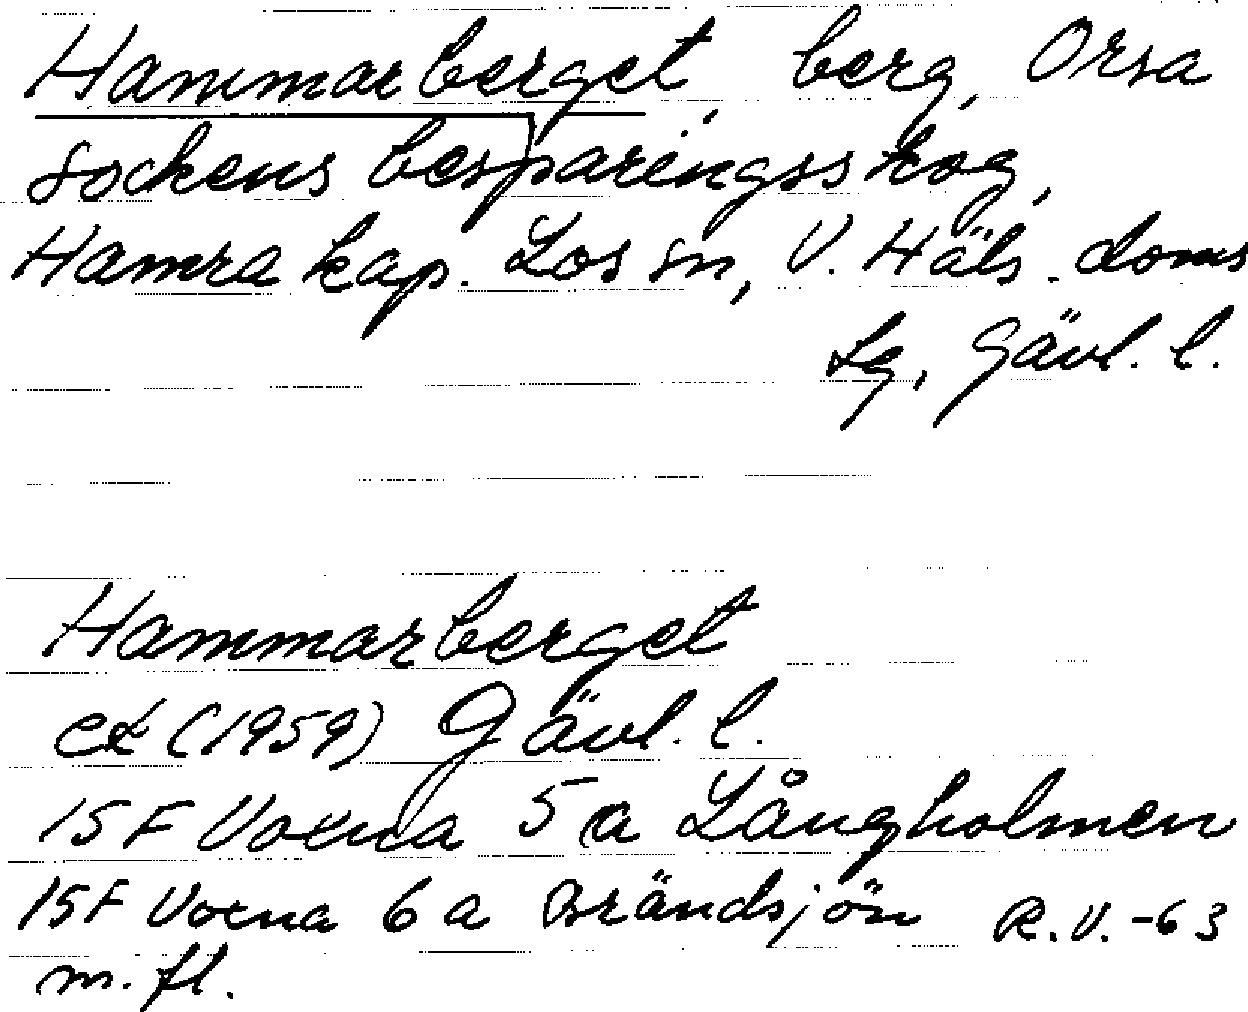 Hammarberget, berg, Orsa
sockens besparingsskog,
Hamra kap. Los sn, V. Häls. doms
Lg, Gävl. l.
Hammarberget
ek (1959) Gävl. l.
15F Voxna 5a Långholmen
15F Voxna 6a Brändsjön R.V.-63
m. fl.